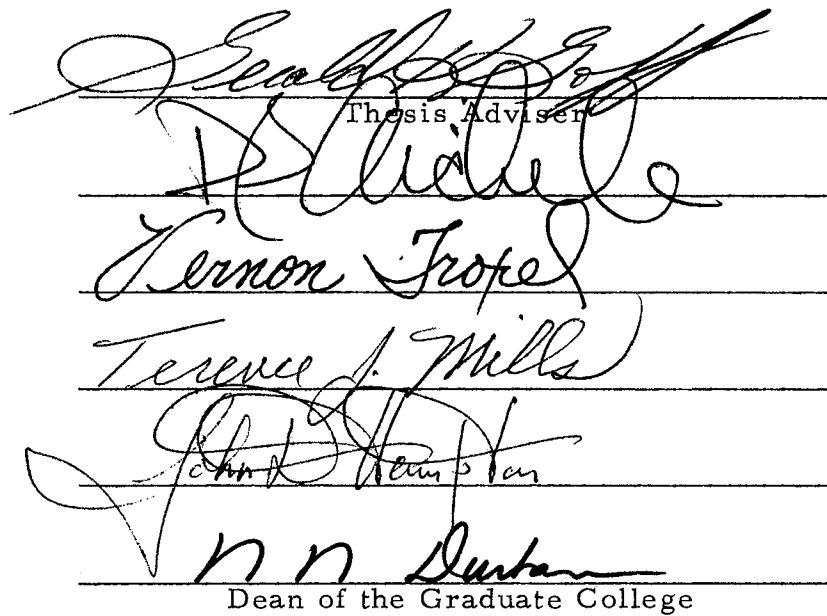 Gerald K. Goff
Thesis Adviser
Vernon Troxel
Terence J. Mills
John D. Hampton
n n Durham
Dean of the Graduate College